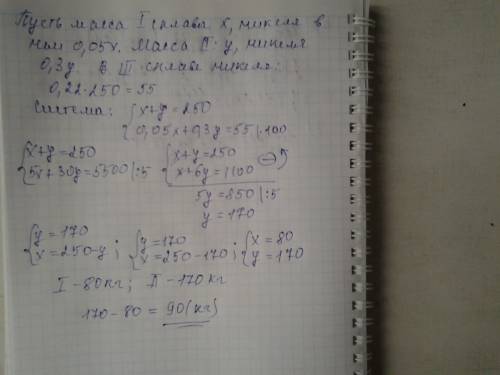 Пусть масса I сплава x, никеля в
нём 0,05x. Масса II y, никеля
0,3y. В III сплаве никеля:
0,22·250=55
Система: {x+y=250
{0,05x+0,3y=55|·100
{x+y=250 {x+y=250
{5x+30y=5500|:5 {x+6y=1100 (-)
5y=850|:5
y=170
{y=170 ; {y=170 ; {x=80
{x=250-y {x=250-170 {y=170
I-80кг; II-170кг
170-80=90(кг)